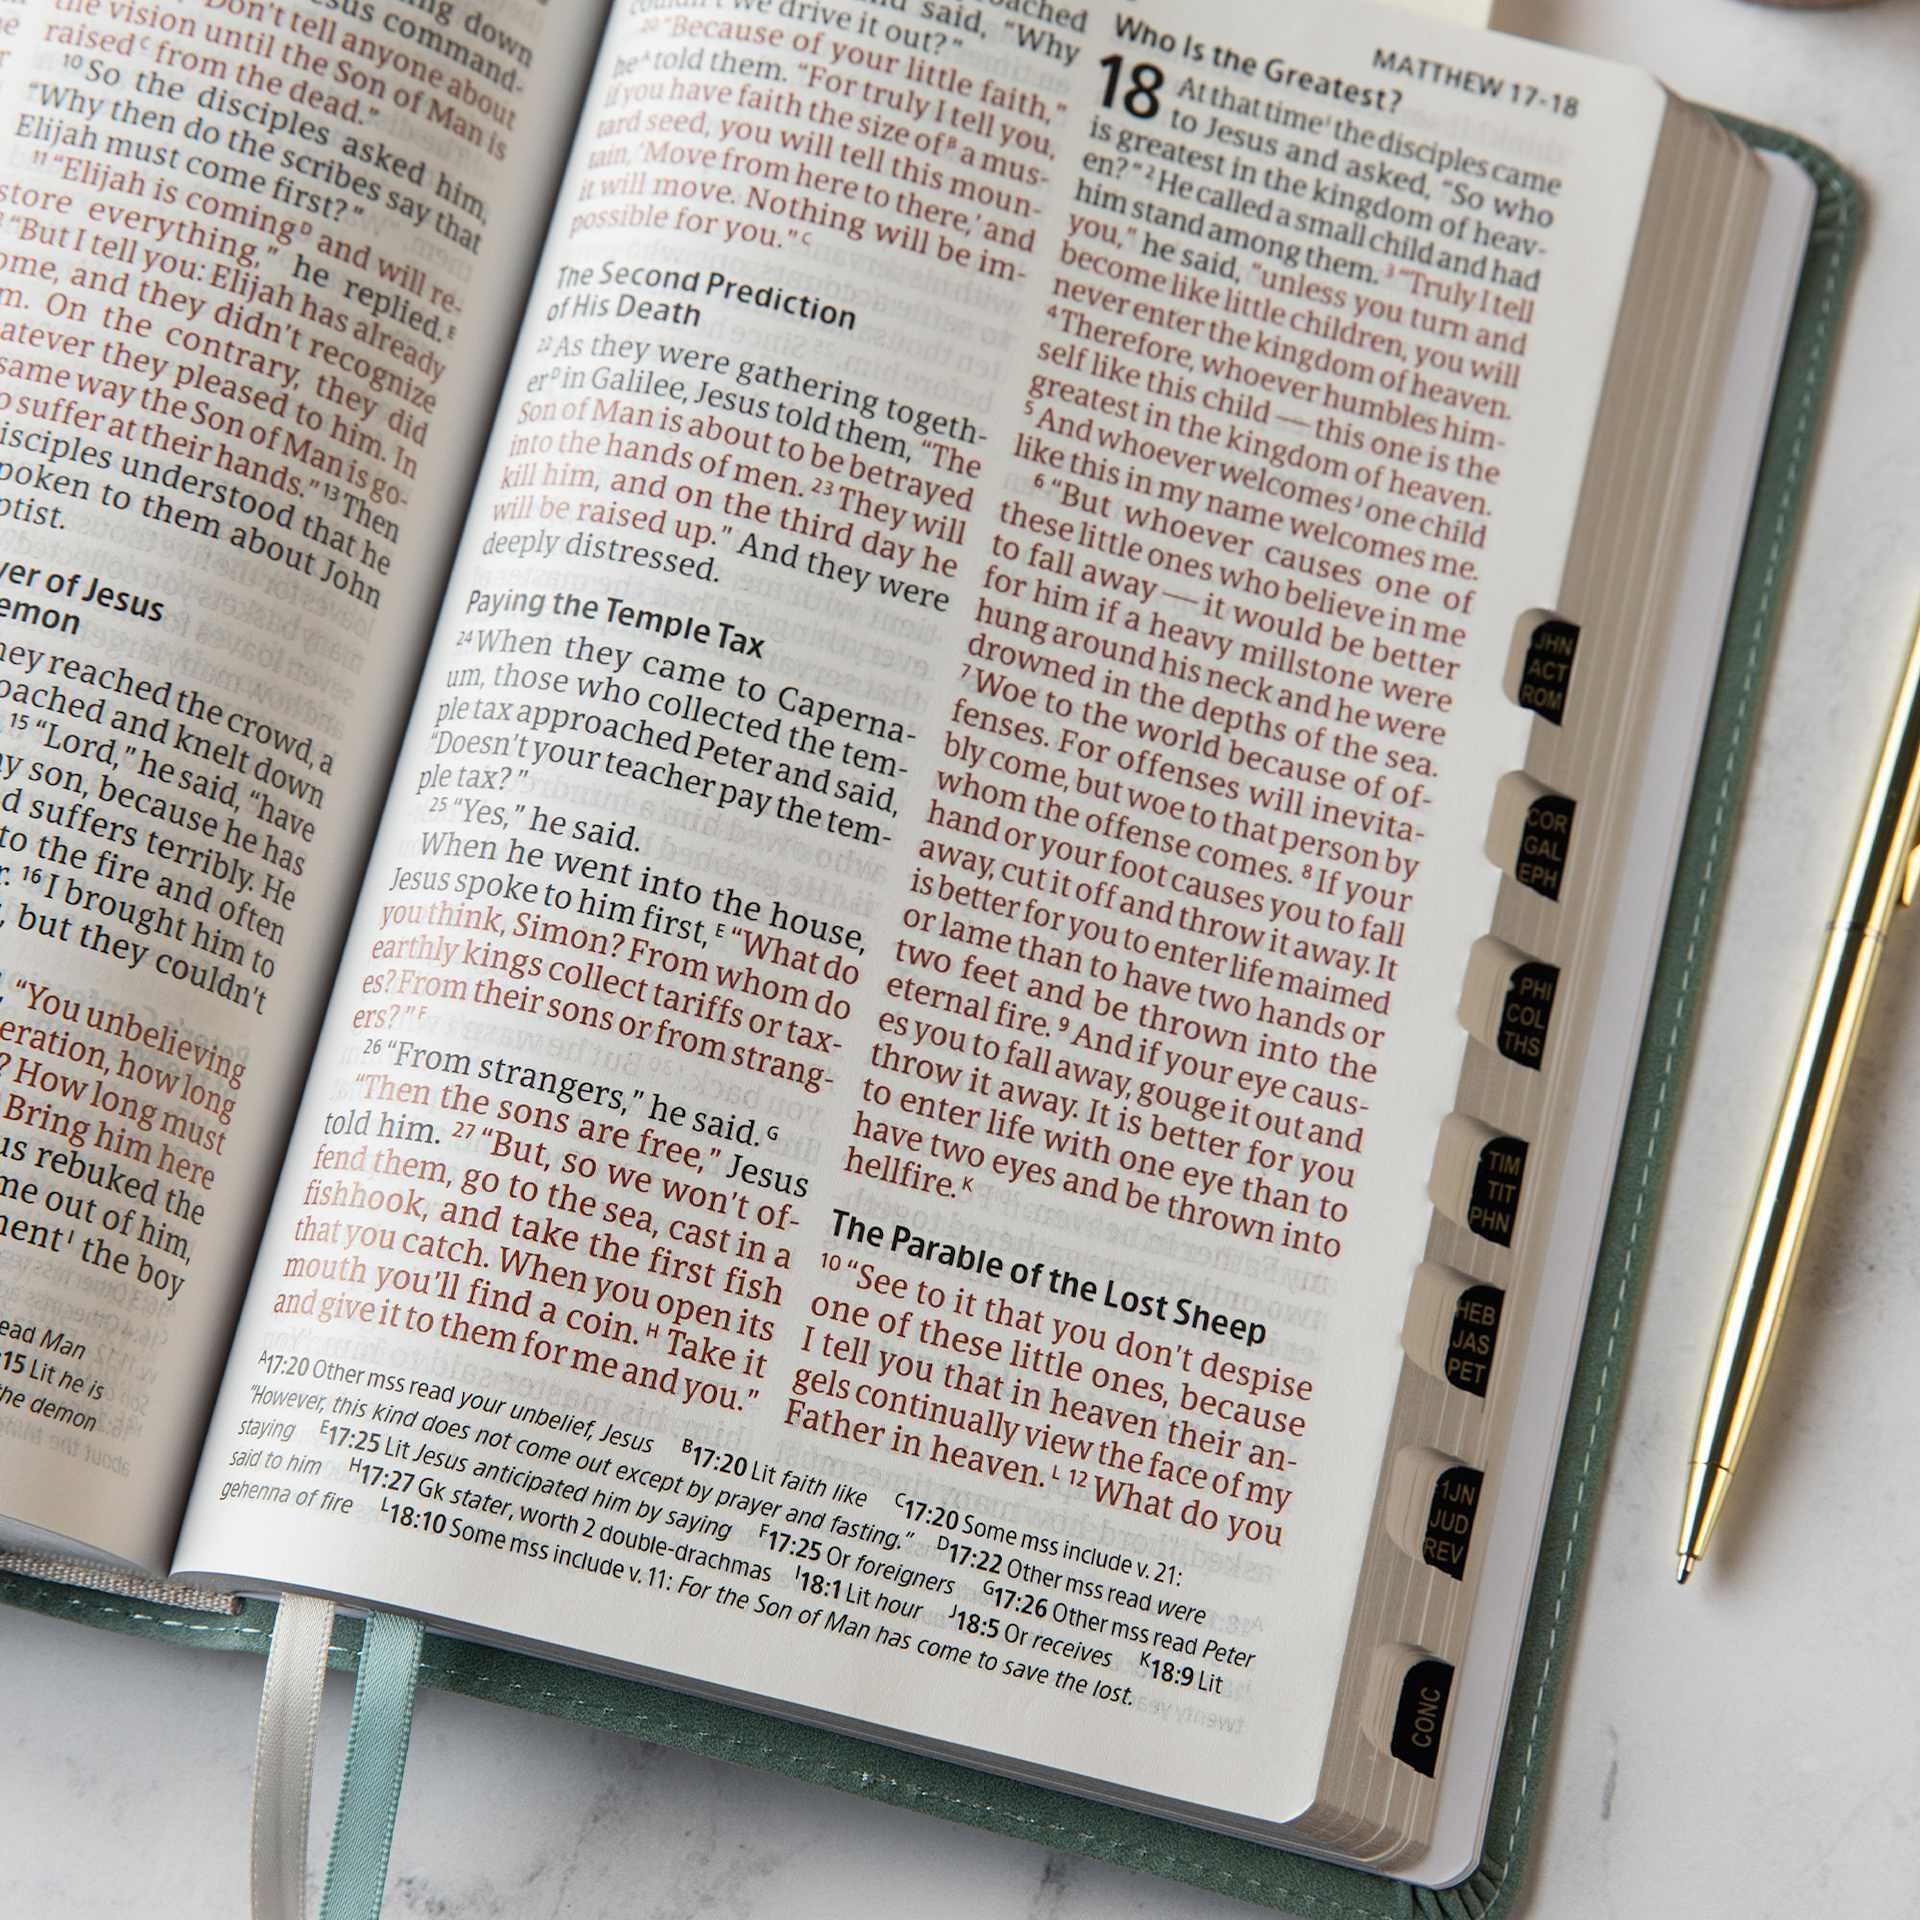 ng down
Jesus command-
"Don't tell anyone about
the vision until the Son of Man is
raised C from the dead."
10 So the disciples asked him,
"Why then do the scribes say that
Elijah must come first?"
11 "Elijah is coming D and will re-
store everything," he replied. E
"But I tell you: Elijah has already
ome, and they didn't recognize
m. On the contrary, they did
atever they pleased to him. In
same way the Son of Man is go-
o suffer at their hands." 13 Then
isciples understood that he
poken to them about John
ptist.
wer of Jesus
emon
hey reached the crowd, a
oached and knelt down
15 "Lord," he said, "have
y son, because he has
d suffers terribly. He
to the fire and often
r. 16 I brought him to
, but they couldn't
"You unbelieving
eration, how long
? How long must
Bring him here
us rebuked the
me out of him,
ment I the boy
ead Man
15 Lit he is
the demon
oached
and said, "Why
we drive it out?"
20 "Because of your little faith,"
he A told them. "For truly I tell you,
if you have faith the size of B a mus-
tard seed, you will tell this moun-
tain, 'Move from here to there,' and
it will move. Nothing will be im-
possible for you." C
The Second Prediction
of His Death
22 As they were gathering togeth-
er D in Galilee, Jesus told them, "The
Son of Man is about to be betrayed
into the hands of men. 23 They will
kill him, and on the third day he
will be raised up." And they were
deeply distressed.
Paying the Temple Tax
24 When they came to Caperna-
um, those who collected the tem-
ple tax approached Peter and said,
"Doesn't your teacher pay the tem-
ple tax?"
25 "Yes," he said.
When he went into the house,
Jesus spoke to him first, E "What do
you think, Simon? From whom do
earthly kings collect tariffs or tax-
es? From their sons or from strang-
ers?" F
26 "From strangers," he said. G
"Then the sons are free," Jesus
told him. 27 "But, so we won't of-
fend them, go to the sea, cast in a
fishhook, and take the first fish
that you catch. When you open its
mouth you'll find a coin. H Take it
and give it to them for me and you."
MATTHEW 17-18
Who Is the Greatest?
18 At that time I the disciples came
to Jesus and asked, "So who
is greatest in the kingdom of heav-
en?" 2 He called a small child and had
him stand among them. 3 "Truly I tell
you," he said, "unless you turn and
become like little children, you will
never enter the kingdom of heaven.
4 Therefore, whoever humbles him-
self like this child — this one is the
greatest in the kingdom of heaven.
5 And whoever welcomes J one child
like this in my name welcomes me.
6 "But whoever causes one of
these little ones who believe in me
to fall away — it would be better
for him if a heavy millstone were
hung around his neck and he were
drowned in the depths of the sea.
7 Woe to the world because of of-
fenses. For offenses will inevita-
bly come, but woe to that person by
whom the offense comes. 8 If your
hand or your foot causes you to fall
away, cut it off and throw it away. It
is better for you to enter life maimed
or lame than to have two hands or
two feet and be thrown into the
eternal fire. 9 And if your eye caus-
es you to fall away, gouge it out and
throw it away. It is better for you
to enter life with one eye than to
have two eyes and be thrown into
hellfire. K
The Parable of the Lost Sheep
10 "See to it that you don't despise
one of these little ones, because
I tell you that in heaven their an-
gels continually view the face of my
Father in heaven. L 12 What do you
A 17:20 Other mss read your unbelief, Jesus B 17:20 Lit faith like C 17:20 Some mss include v. 21:
"However, this kind does not come out except by prayer and fasting." D 17:22 Other mss read were
staying E 17:25 Lit Jesus anticipated him by saying F 17:25 Or foreigners G 17:26 Other mss read Peter
said to him H 17:27 Gk stater, worth 2 double-drachmas I 18:1 Lit hour J 18:5 Or receives K 18:9 Lit
gehenna of fire L 18:10 Some mss include v. 11: For the Son of Man has come to save the lost.
JHN
ACT
ROM
COR
GAL
EPH
PHI
COL
THS
TIM
TIT
PHN
HEB
JAS
PET
1JN
JUD
REV
CONC